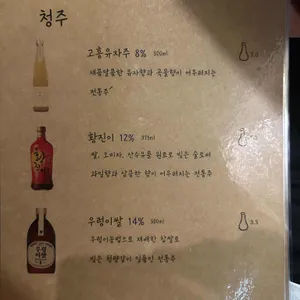 청주
고흥유자주 8% 500ml
새콤달콤한 유자향과 곡물향이 어우러지는
전통주
황진이 12% 375ml
쌀, 오미자, 산수유를 원료로 빚은 술로써
과일향과 상큼한 향이 어우러지는 전통주
우렁이쌀 14% 500ml
5.5
우렁이농법으로 재배한 찹쌀로
빚은 전통주
우렁
이쌀